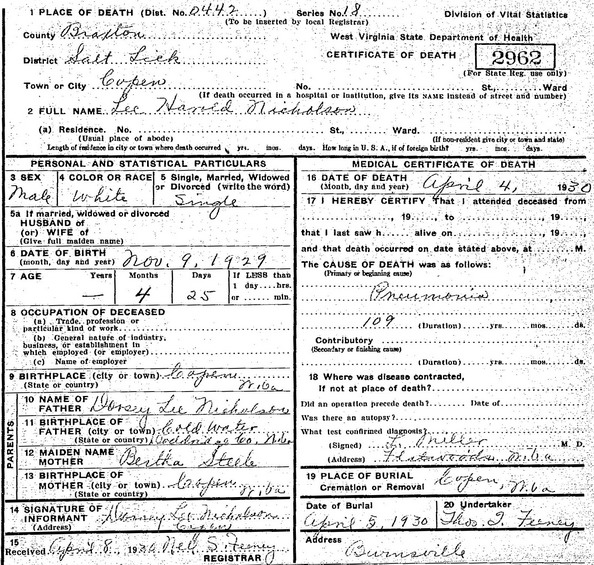 1 PLACE OF DEATH (Dist. No. 0442 Series No. 18 Division of Vital Statistics
(To be inserted by local Registrar)
County Braxton West Virginia State Department of Health
District Salt Lick CERTIFICATE OF DEATH 2962
Town or City Copen No. St., Ward. (For State Reg. use only)
(If death occurred in a hospital or institution, give its NAME instead of street and number)
2 FULL NAME Lee Harold Nicholson
(a) Residence. No. St., Ward.
(Usual place of abode) (If non-resident give city or town and state)
Length of residence in city or town where death occurred yrs. mos. days. How long in U. S. A., if of foreign birth? yrs. mos. days.
PERSONAL AND STATISTICAL PARTICULARS
3 SEX 4 COLOR OR RACE 5 Single, Married, Widowed or Divorced (write the word)
Male White Single
5a If married, widowed or divorced
HUSBAND of
(or) WIFE of
(Give full maiden name)
6 DATE OF BIRTH
(month, day and year) Nov. 9, 1929
7 AGE Years Months Days If LESS than
1 day....hrs.
— 4 25 or ...... min.
8 OCCUPATION OF DECEASED
(a) Trade, profession or
particular kind of work
(b) General nature of industry,
business, or establishment in
which employed (or employer)
(c) Name of employer
9 BIRTHPLACE (city or town) Copen
(State or country) W. Va
PARENTS
10 NAME OF
FATHER Dorsey Lee Nicholson
11 BIRTHPLACE OF
FATHER (city or town) Cold Water
(State or country) Doddridge Co. W. Va
12 MAIDEN NAME
MOTHER Bertha Steele
13 BIRTHPLACE OF
MOTHER (city or town) Copen
(State or country) W. Va
14 SIGNATURE OF
INFORMANT Dorsey Lee Nicholson
(Address) Copen
15
Received April 8 1930 S. Feeney
REGISTRAR
MEDICAL CERTIFICATE OF DEATH
16 DATE OF DEATH
(Month, day and year) April 4, 1930
17 I HEREBY CERTIFY That I attended deceased from
, 19 to , 19 ,
that I last saw h alive on , 19 ,
and that death occurred on date stated above, at M.
The CAUSE OF DEATH was as follows:
(Primary or beginning cause)
Pneumonia
109 (Duration) yrs. mos. ds.
Contributory
(Secondary or finishing cause)
(Duration) yrs. mos. ds.
18 Where was disease contracted,
If not at place of death?
Did an operation precede death? Date of
Was there an autopsy?
What test confirmed diagnosis?
(Signed) Miller M. D.
(Address) Flatwoods W. Va
19 PLACE OF BURIAL
Cremation or Removal Copen, W. Va
Date of Burial 20 Undertaker
April 5, 1930 Thos. I. Feeney
Address
Burnsville